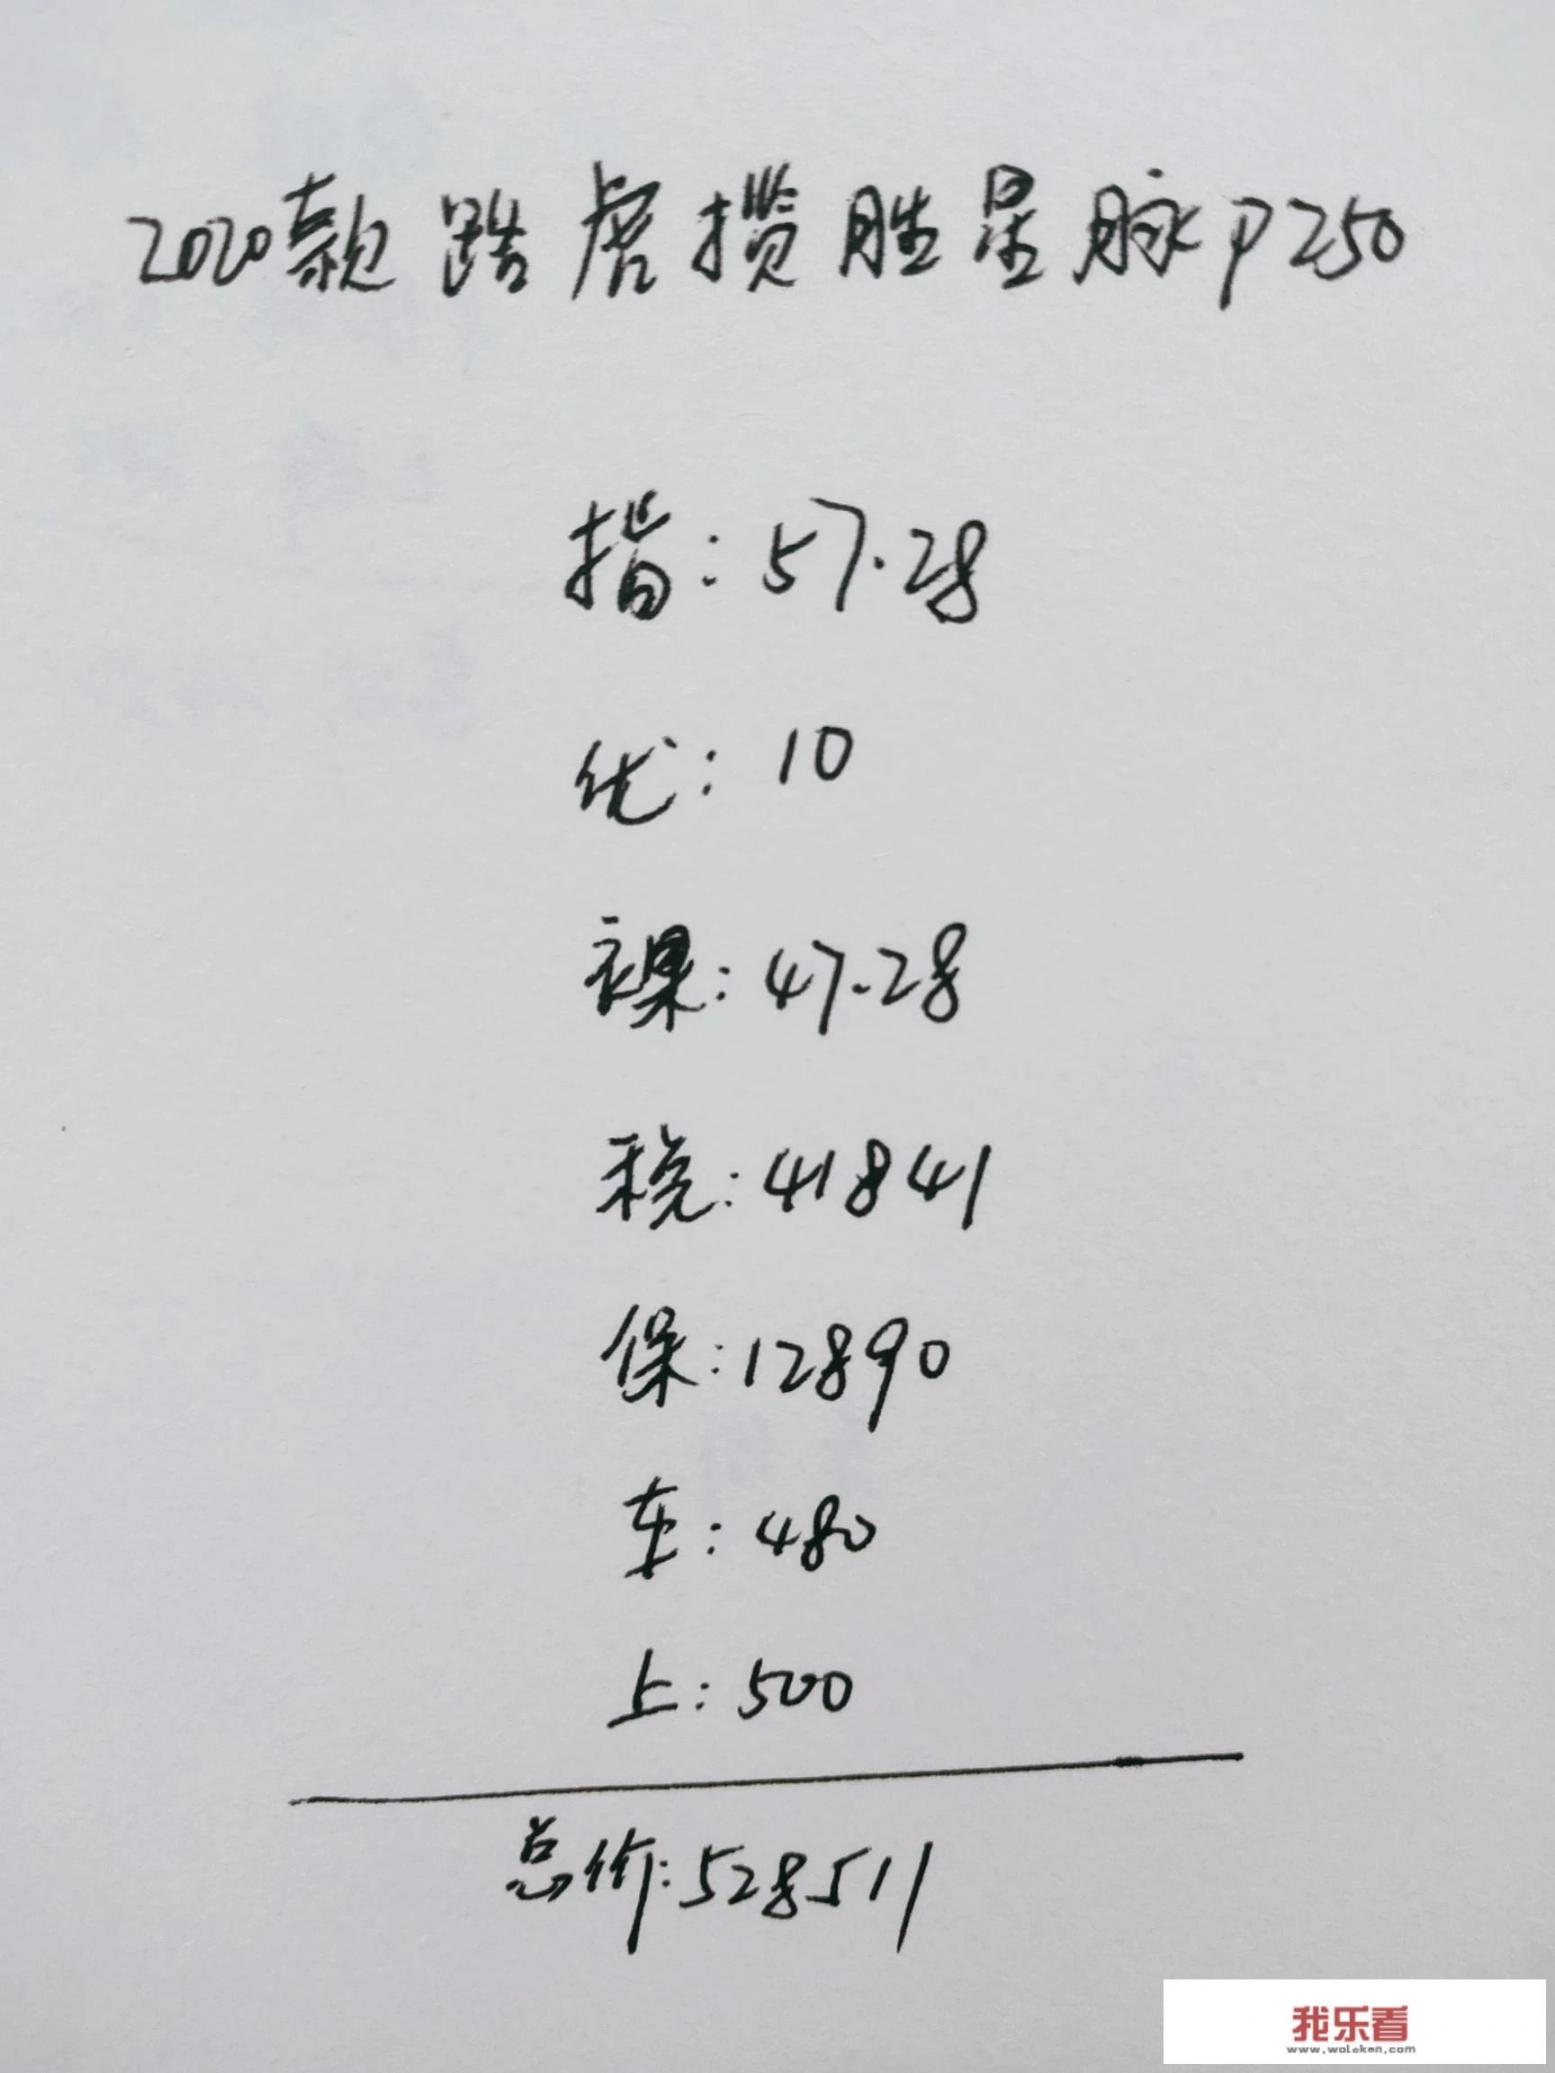 2020款路虎揽胜星脉P250
指:57.28
优:10
裸:47.28
税:41841
保:12890
车:480
上:500
总价:528511
我乐看
www.woleken.com